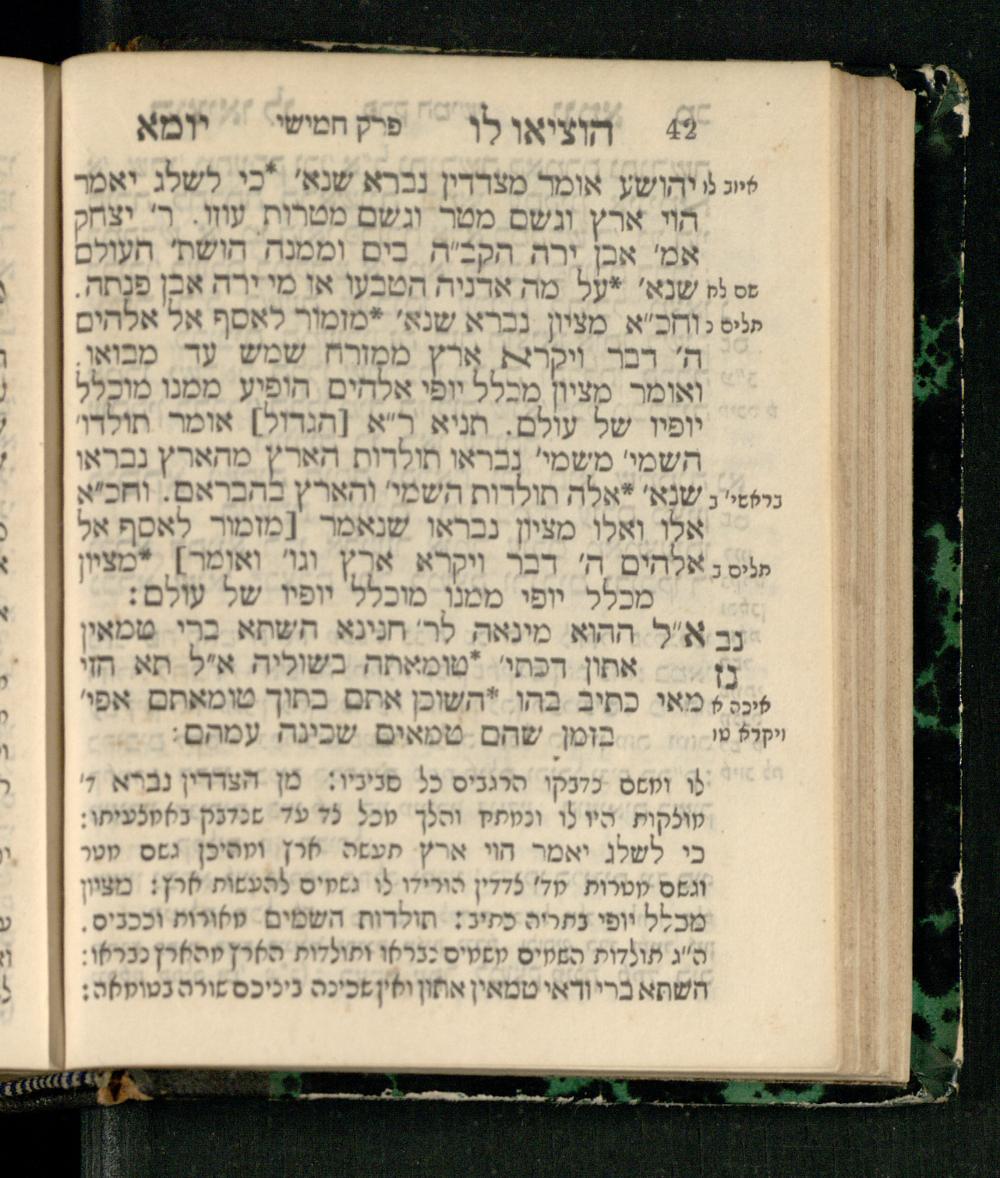 42 הוציאו לו פרק חמישי יומא
איוב לו יהושע אומר מצדדין נברא שנא׳ *כי לשלג יאמר
הוי ארץ וגשם מטר וגשם מטרות עוזו. ר׳ יצחק
אמ׳ אבן ירה הקב״ה בים וממנה הושת׳ העולם
שם לח שנא׳ *על מה אדניה הטבעו או מי ירה אבן פנתה.
תלים נ וחכ״א מציון נברא שנא׳ *מזמור לאסף אל אלהים
ה׳ דבר ויקרא ארץ ממזרח שמש עד מבואו.
ואומר מציון מכלל יופי אלהים הופיע ממנו מוכלל
יופיו של עולם. תניא ר״א [הגדול] אומר תולדו׳
השמי׳ משמי׳ נבראו תולדות הארץ מהארץ נבראו
בראשי׳ ב שנא׳ *אלה תולדות השמי׳ והארץ בהבראם. וחכ״א
אלו ואלו מציון נבראו שנאמר [מזמור לאסף אל
תלים נ אלהים ה׳ דבר ויקרא ארץ וגו׳ ואומר] *מציון
מכלל יופי ממנו מוכלל יופיו של עולם:
נב א״ל ההוא מינאה לר׳ חנינא השתא ברי טמאין
נז אתון דכתי׳ *טומאתה בשוליה א״ל תא חזי
איכה א מאי כתיב בהו *השוכן אתם בתוך טומאתם אפי׳
ויקרא טז בזמן שהם טמאים שכינה עמהם:
לו ומשם נדבקו הרגבים כל סביביו: מן הצדדין נברא ד׳
חולקות היו לו ונמתח והלך מכל צד עד שנדבק באמצעיתו:
כי לשלג יאמר הוי ארץ תעשה ארץ ומהיכן גשם מטר
וגשם מטרות מד׳ צדדין הורידו לו גשמים להעשות ארץ: מציון
מכלל יופי בתריה כתיב: תולדות השמים מאורות וככבים.
ה״ג תולדות השמים משמים נבראו ותולדות הארץ מהארץ נבראו:
השתא ברי ודאי טמאין אתון ואין שכינה ביניכם שורה בטומאה: